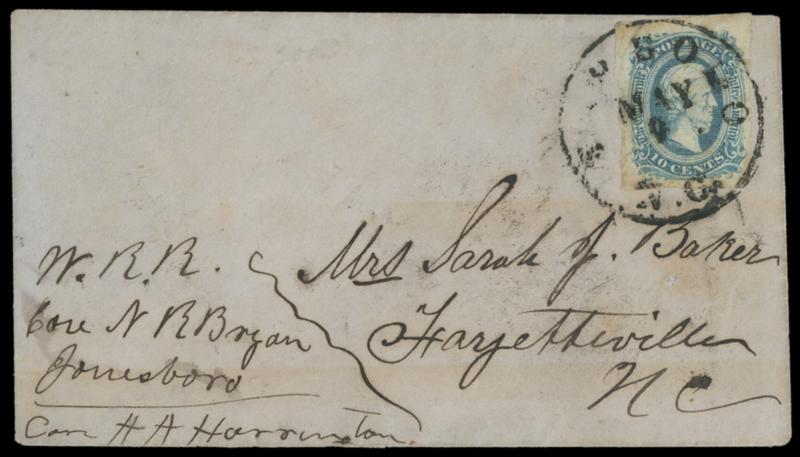 POSTAGE
MAY
N.C.
10 CENTS
W. R. R.
Care N R Bryan
Jonesboro
Care H A Harrington.
Mrs Sarah J. Baker
Fayetteville
N C